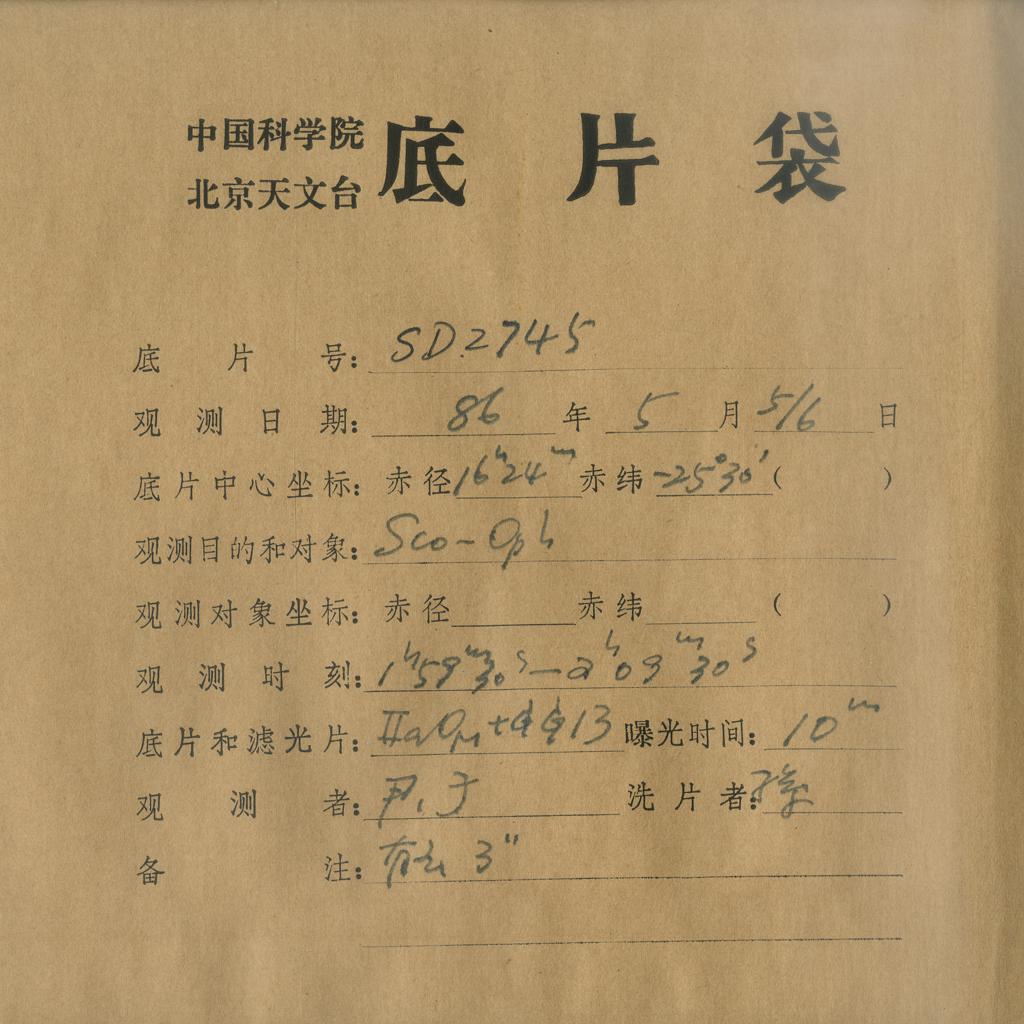 中国科学院
北京天文台 底片袋
底片号: SD2745
观测日期: 86年 5月 5/6日
底片中心坐标: 赤径 16h24m 赤纬 -25°30′ ( )
观测目的和对象: Sco-Oph
观测对象坐标: 赤径 赤纬 ( )
观测时刻: 1h59m30s—2h09m30s
底片和滤光片: IIaO + GG13 曝光时间: 10m
观测者: 尹、于 洗片者: 孫
备注: 有云 3"